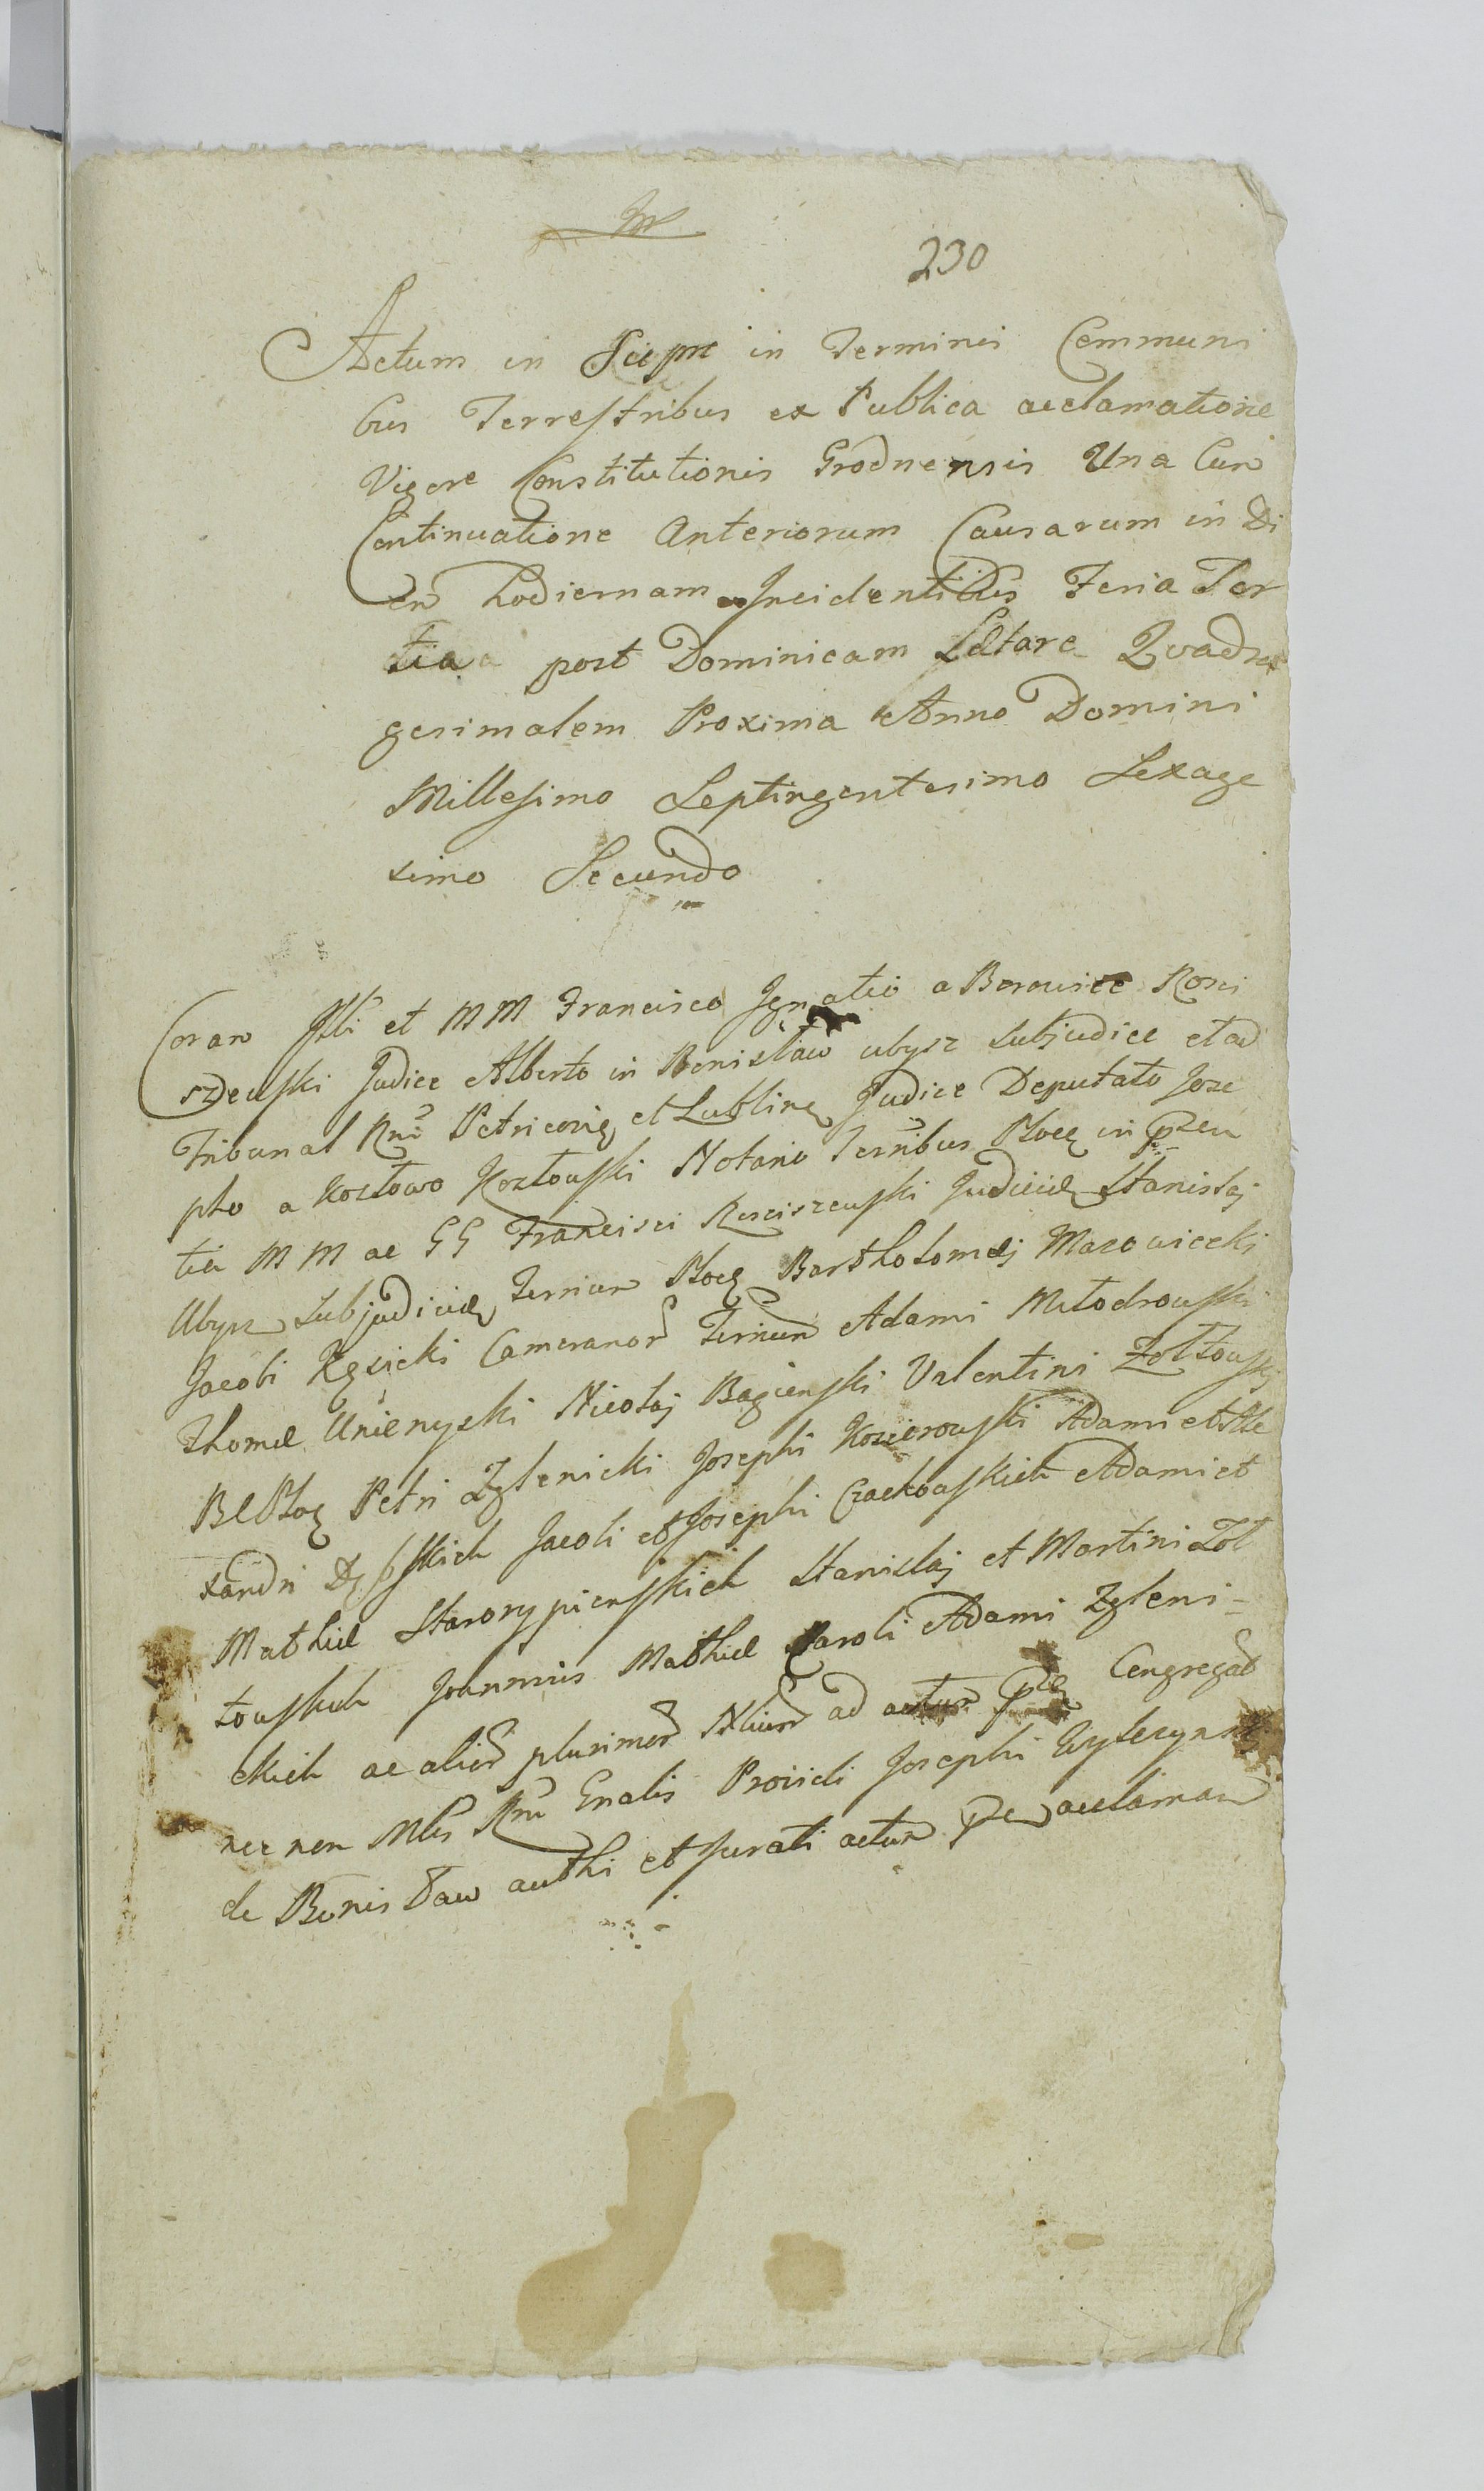 230
Actum in Sierpc in Terminis Communi
bus Terrestribus ex Publica acclamatione
Vigore Constitutionis Grodnensis Una Cum
Continuatione Anteriorum Causarum in Di
em hodiernam Incidentibus Feria Ter
tia post Dominicam Lætare Quadra
gesimalem Proxima Anno Domini
Millesimo Septingentesimo Sexage
simo Secundo
Coram Illi et MM Francisco Ignatio a Borowice Rosci
szewski Judice Alberto in Bonisław Ubysz Subjudice et ad
Tribunal Rni Petricovię et Lublinę Judice Deputato Jose
pho a Kozłowo Kozłowski Notario Terribus Płocę in pręn
tia MM ac GG Francisci Rosciszewski Judicis Stanislaj
Ubysz Subjudicis Terriar Płocę Bartholomęj Mazowiecki
Jacobi Kęsicki Cameranor Terriar Adami Młodzowski
Thomæ Unienyski Nicolaj Bagienski Valentini Żołtowskj
Petri Zglenicki Josephi Kosierowski Adami et Ale
xandri Jacobi et Josephi Czackowskich Adami et
Mathiæ Starorypienskich Stanislaj et Martini Żoł
towskich Joannis Mathiæ Karoli Adami Zgleni-
ckich ac alior plurimor Nliun ad actum Congregat
nec non Mlis Rni Gnalis Providi Josephi
de Bonisław authi et Jurati actum acclaman